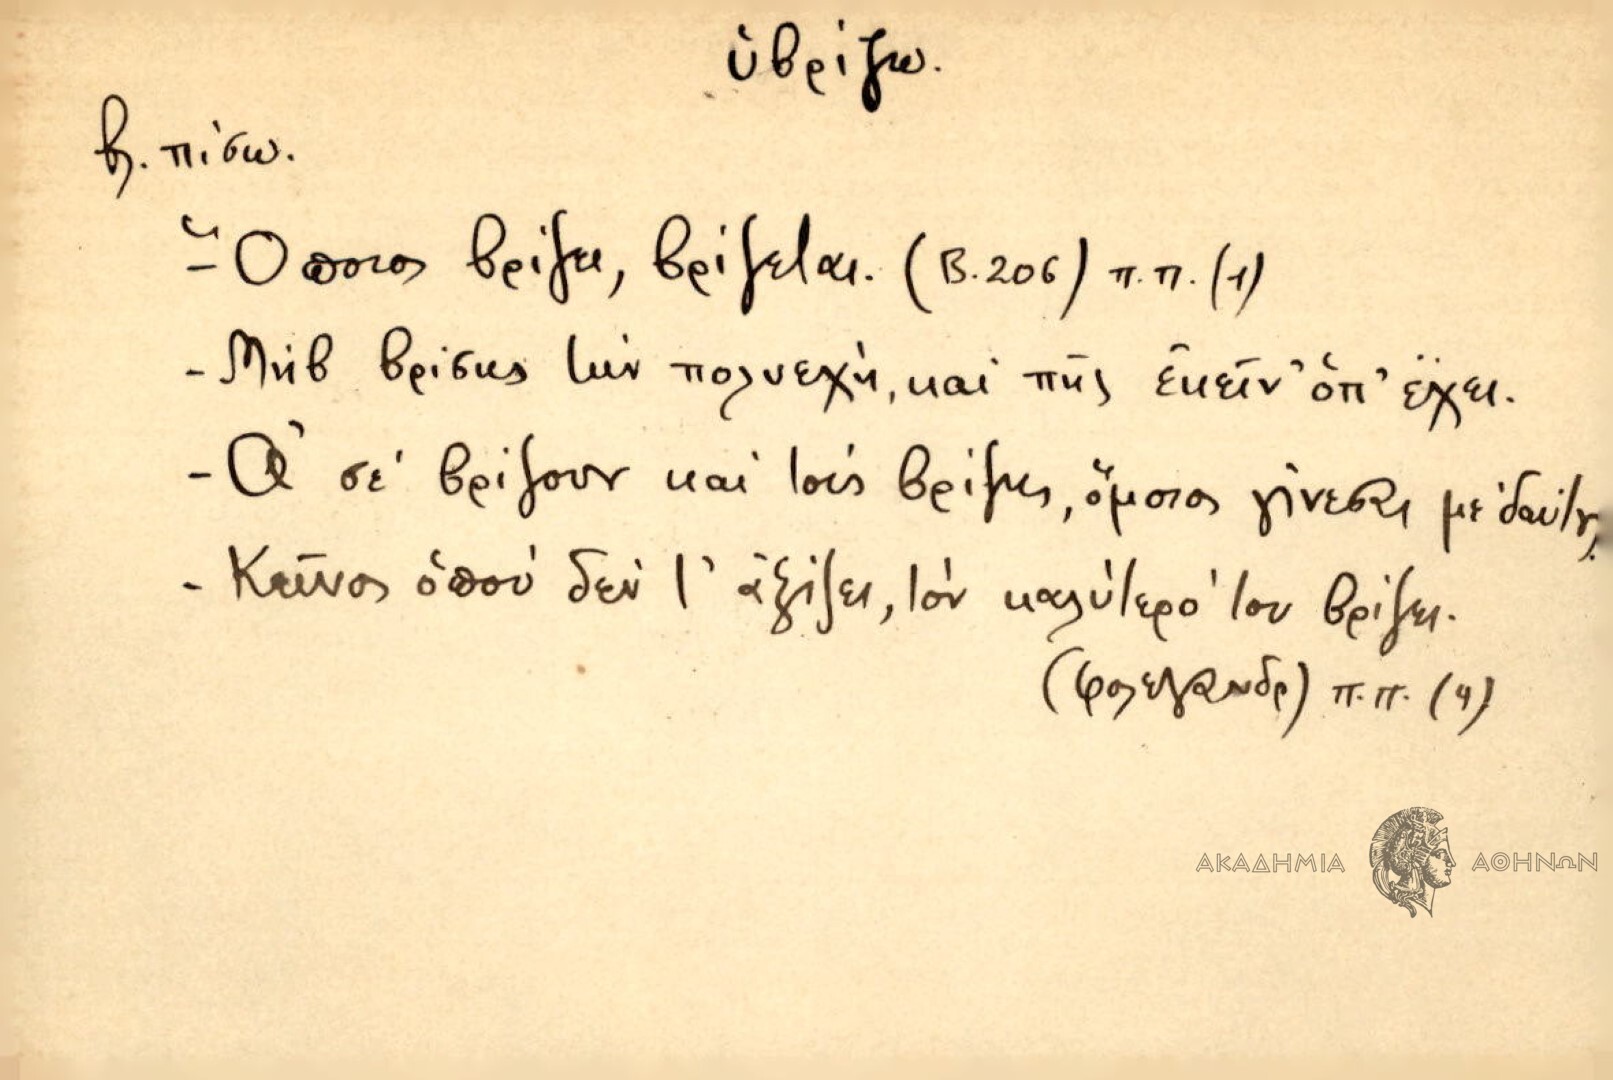 ὑβρίζω.
βλ. πίσω.
- Ὅποιος βρίζει, βρίζεται. (Β. 206) π.π. (1)
- Μὴ βρίσῃς τὴν πολυεχὴ, καὶ πῇς ἐκεῖν' ὁπ' ἔχει.
- Ἂ σὲ βρίζουν καὶ τοὺς βρίζῃς, ὅμοιος γίνεσαι μὲ
- Κεῖνος ὁποὺ δὲν τ' ἀξίζει, τὸν καλύτερό του βρίζει.
(Φολεγανδρ) π.π. (4)
ΑΚΑΔΗΜΙΑ ΑΘΗΝΩΝ